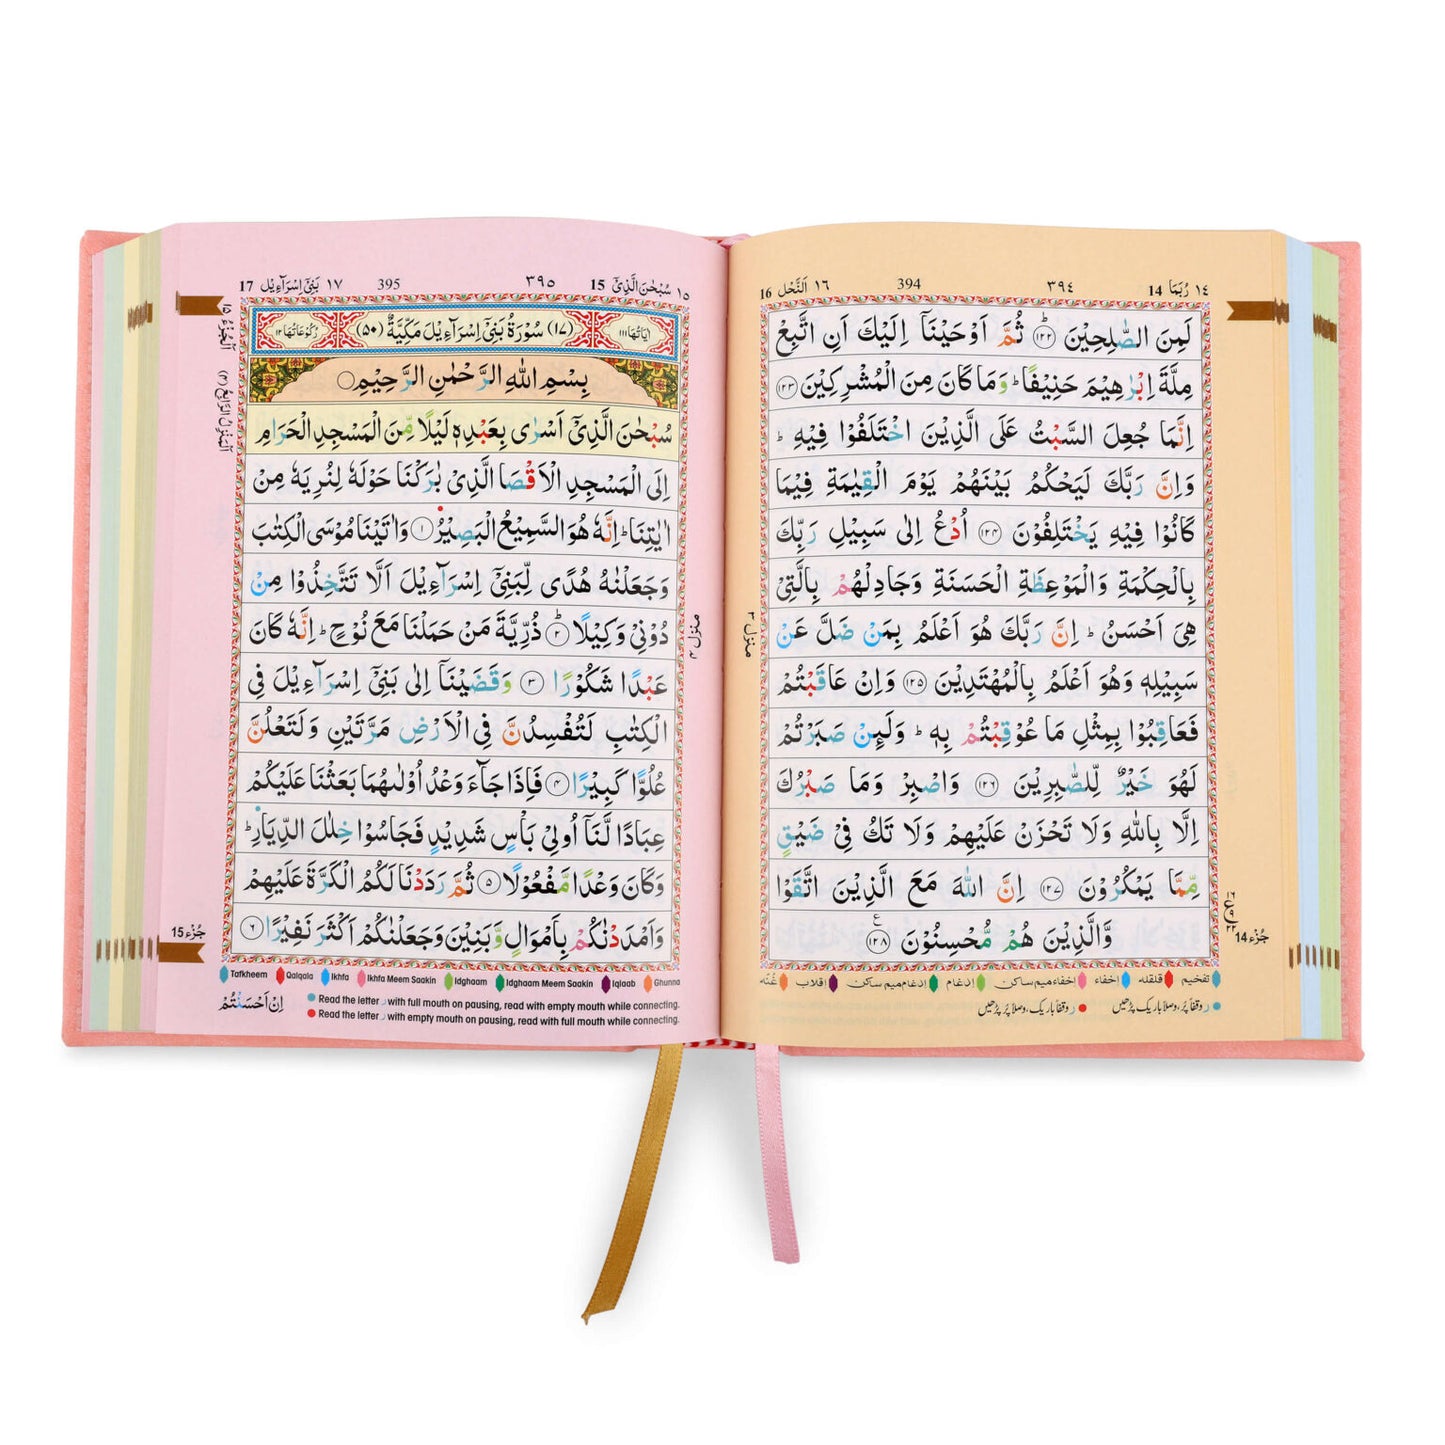 ١٤ رُبَمَا 14
٣٩٤
394
١٦ اَلنَّحْل 16
لَمِنَ الصّٰلِحِيْنَ ﴿١٢٢﴾ؕ ثُمَّ اَوْحَيْنَاۤ اِلَيْكَ اَنِ اتَّبِعْ
مِلَّةَ اِبْرٰهِيْمَ حَنِيْفًا ؕ وَمَا كَانَ مِنَ الْمُشْرِكِيْنَ ﴿١٢٣﴾
اِنَّمَا جُعِلَ السَّبْتُ عَلَى الَّذِيْنَ اخْتَلَفُوْا فِيْهِ ؕ
وَاِنَّ رَبَّكَ لَيَحْكُمُ بَيْنَهُمْ يَوْمَ الْقِيٰمَةِ فِيْمَا
كَانُوْا فِيْهِ يَخْتَلِفُوْنَ ﴿١٢٤﴾ اُدْعُ اِلٰى سَبِيْلِ رَبِّكَ
بِالْحِكْمَةِ وَالْمَوْعِظَةِ الْحَسَنَةِ وَجَادِلْهُمْ بِالَّتِيْ
هِىَ اَحْسَنُ ؕ اِنَّ رَبَّكَ هُوَ اَعْلَمُ بِمَنْ ضَلَّ عَنْ
سَبِيْلِهٖ وَهُوَ اَعْلَمُ بِالْمُهْتَدِيْنَ ﴿١٢٥﴾ وَاِنْ عَاقَبْتُمْ
فَعَاقِبُوْا بِمِثْلِ مَا عُوْقِبْتُمْ بِهٖ ؕ وَلَىِٕنْ صَبَرْتُمْ
لَهُوَ خَيْرٌ لِّلصّٰبِرِيْنَ ﴿١٢٦﴾ وَاصْبِرْ وَمَا صَبْرُكَ
اِلَّا بِاللّٰهِ وَلَا تَحْزَنْ عَلَيْهِمْ وَلَا تَكُ فِيْ ضَيْقٍ
مِّمَّا يَمْكُرُوْنَ ﴿١٢٧﴾ اِنَّ اللّٰهَ مَعَ الَّذِيْنَ اتَّقَوْا
وَّالَّذِيْنَ هُمْ مُّحْسِنُوْنَ ﴿١٢٨﴾ ع
منزل ٣
جُزْء 14
تفخیم قلقلہ اخفاء اخفاءمیم ساکن ادغام ادغام میم ساکن اقلاب غُنّہ
ر وقفاً پُر، وصلاً باریک پڑھیں ر وقفاً باریک، وصلاً پُر پڑھیں
١٥ سُبْحٰنَ الَّذِيْٓ 15
٣٩٥
395
١٧ بَنِيْٓ اِسْرَآءِيْل 17
اٰيَاتُهَا ١١١
(١٧) سُوْرَةُ بَنِيْٓ اِسْرَآءِيْلَ مَكِّيَّةٌ (٥٠)
رُكُوْعَاتُهَا ١٢
بِسْمِ اللّٰهِ الرَّحْمٰنِ الرَّحِيْمِ
سُبْحٰنَ الَّذِيْۤ اَسْرٰى بِعَبْدِهٖ لَيْلًا مِّنَ الْمَسْجِدِ الْحَرَامِ
اِلَى الْمَسْجِدِ الْاَقْصَا الَّذِيْ بٰرَكْنَا حَوْلَهٗ لِنُرِيَهٗ مِنْ
اٰيٰتِنَا ؕ اِنَّهٗ هُوَ السَّمِيْعُ الْبَصِيْرُ ﴿١﴾ وَاٰتَيْنَا مُوْسَى الْكِتٰبَ
وَجَعَلْنٰهُ هُدًى لِّبَنِيْۤ اِسْرَآءِيْلَ اَلَّا تَتَّخِذُوْا مِنْ
دُوْنِيْ وَكِيْلًا ﴿٢﴾ؕ ذُرِّيَّةَ مَنْ حَمَلْنَا مَعَ نُوْحٍ ؕ اِنَّهٗ كَانَ
عَبْدًا شَكُوْرًا ﴿٣﴾ وَقَضَيْنَاۤ اِلٰى بَنِيْۤ اِسْرَآءِيْلَ فِي
الْكِتٰبِ لَتُفْسِدُنَّ فِي الْاَرْضِ مَرَّتَيْنِ وَلَتَعْلُنَّ
عُلُوًّا كَبِيْرًا ﴿٤﴾ فَاِذَا جَآءَ وَعْدُ اُوْلٰىهُمَا بَعَثْنَا عَلَيْكُمْ
عِبَادًا لَّنَاۤ اُولِيْ بَاْسٍ شَدِيْدٍ فَجَاسُوْا خِلٰلَ الدِّيَارِ ؕ
وَكَانَ وَعْدًا مَّفْعُوْلًا ﴿٥﴾ ثُمَّ رَدَدْنَا لَكُمُ الْكَرَّةَ عَلَيْهِمْ
وَاَمْدَدْنٰكُمْ بِاَمْوَالٍ وَّبَنِيْنَ وَجَعَلْنٰكُمْ اَكْثَرَ نَفِيْرًا ﴿٦﴾
منزل ٤
اَلْجُزْءُ ١٥
اَلْمَنْزِلُ الرَّابِعُ (٤)
جُزْء 15
Tafkheem Qalqala Ikhfa Ikhfa Meem Saakin Idghaam Idghaam Meem Saakin Iqlaab Ghunna
اِنْ اَحْسَنْتُمْ
Read the letter ر with full mouth on pausing, read with empty mouth while connecting.
Read the letter ر with empty mouth on pausing, read with full mouth while connecting.